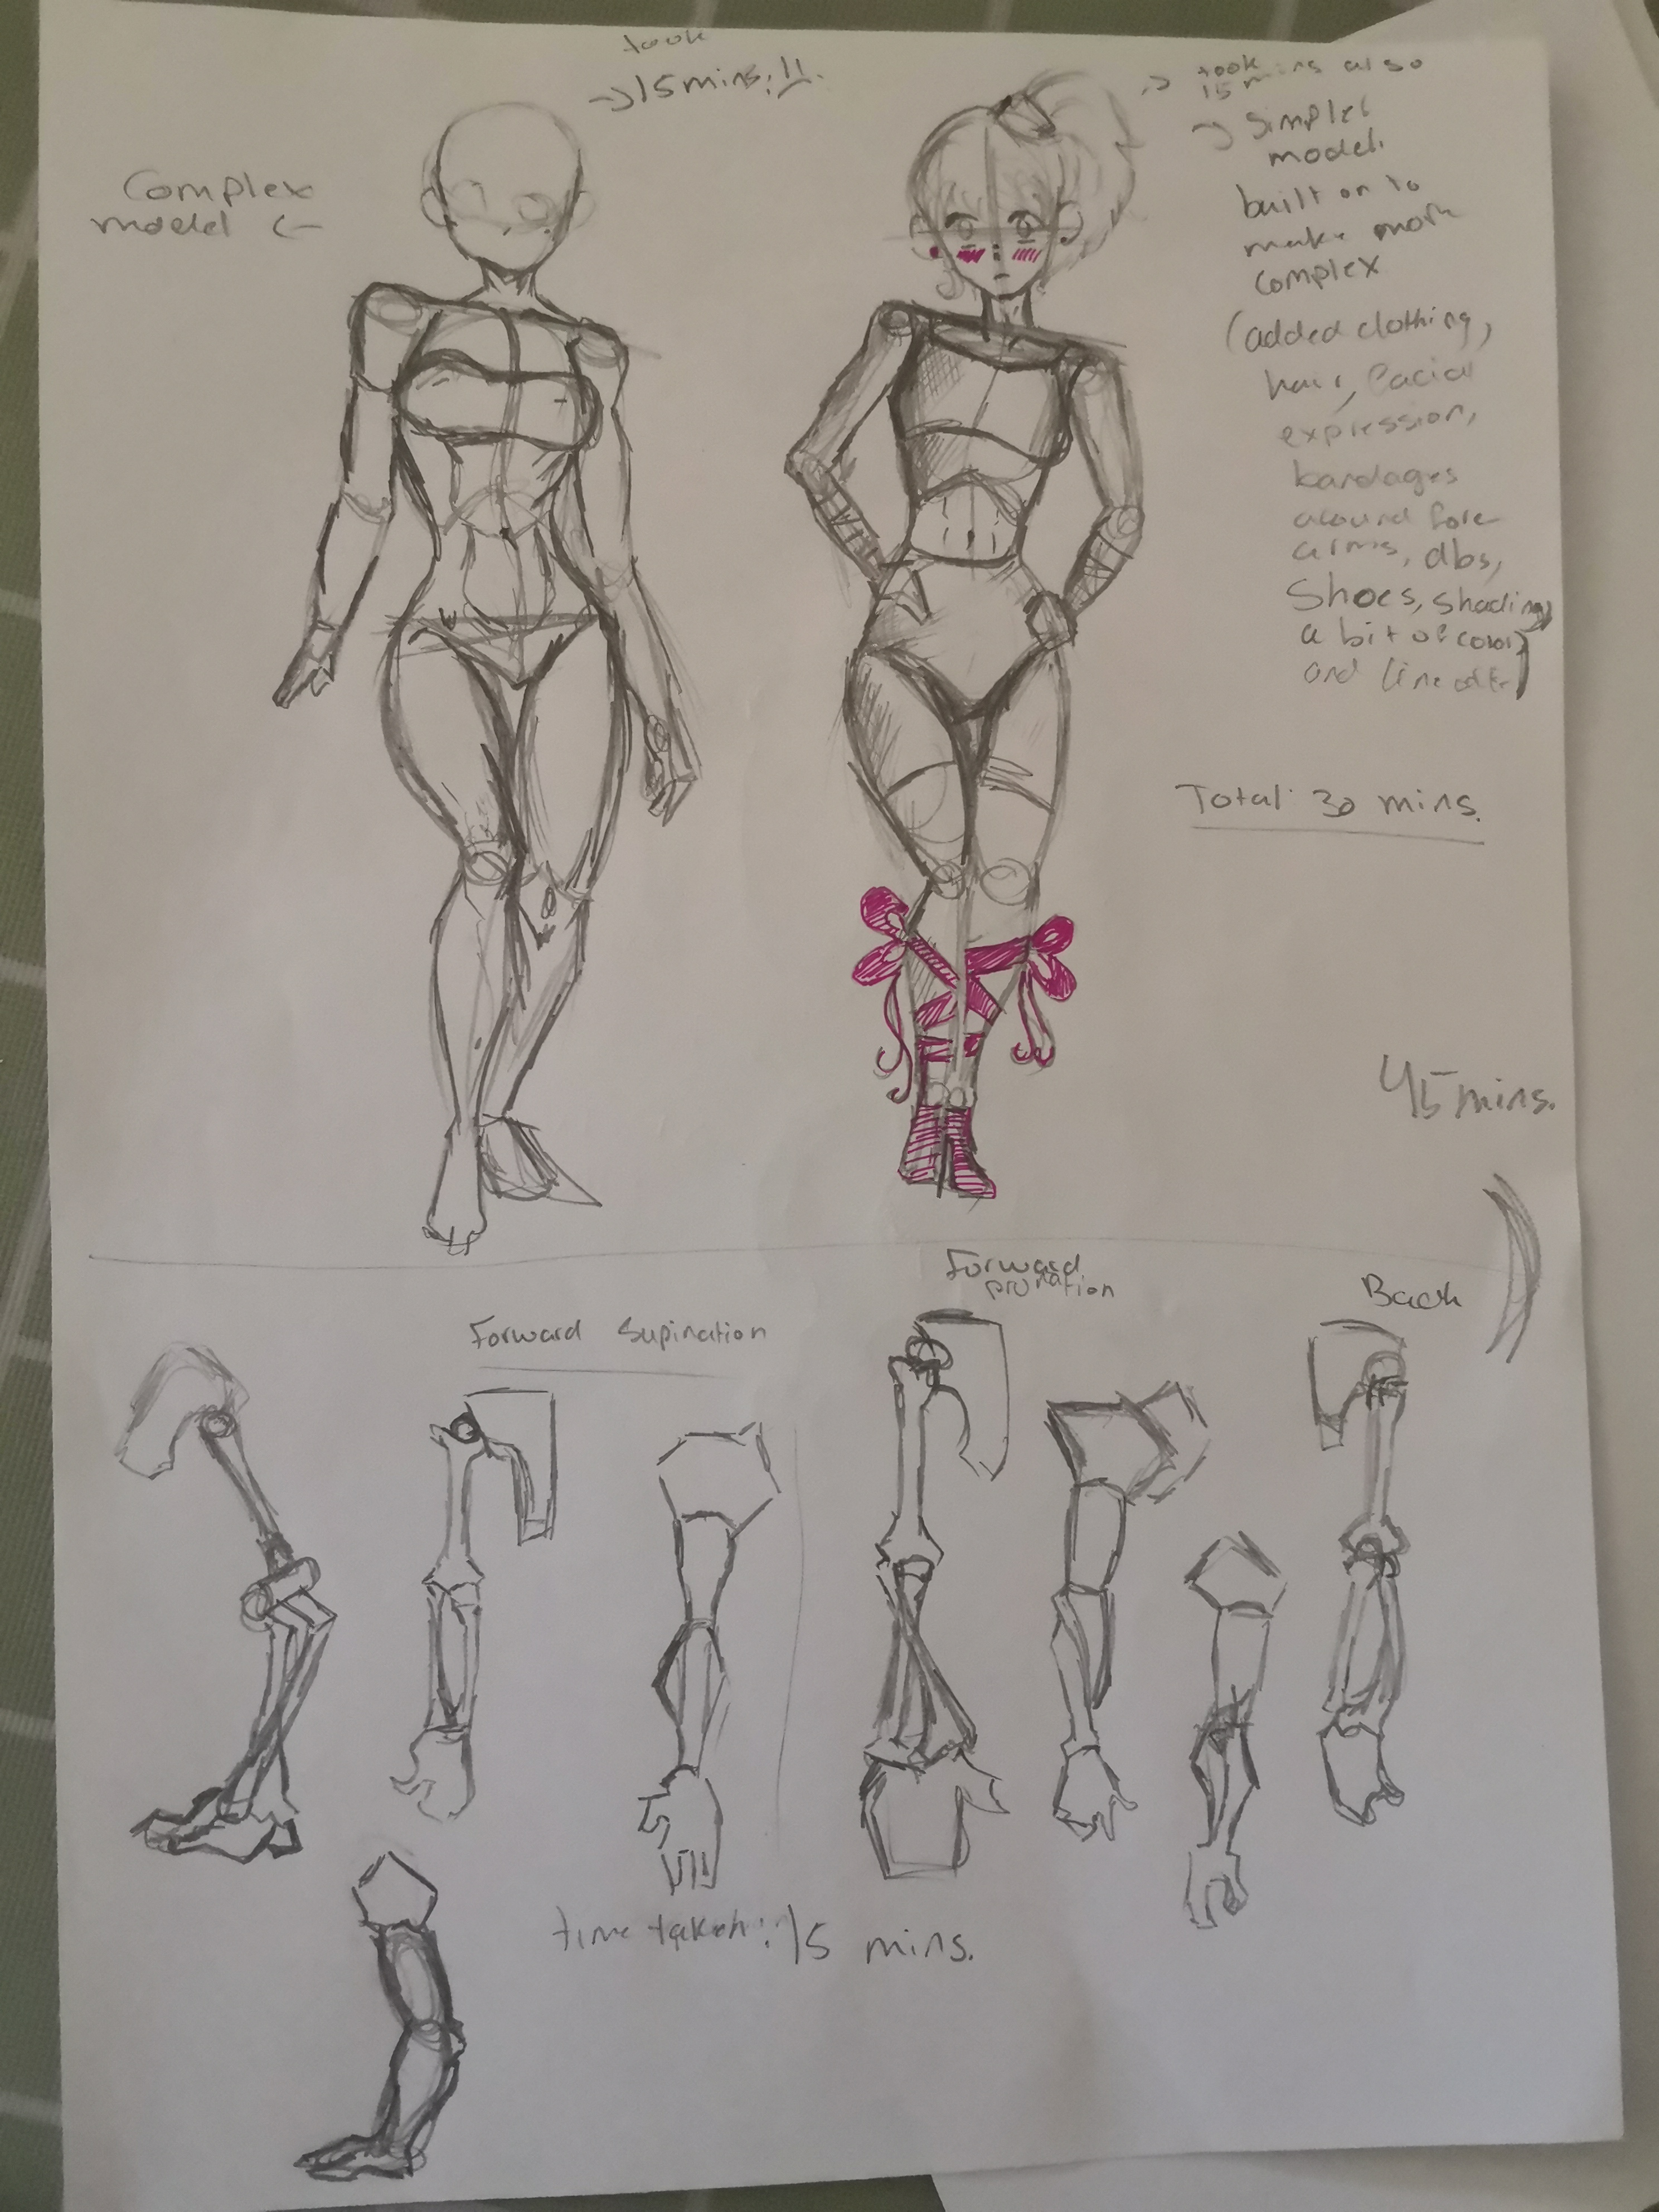 took
→15 mins!!
Complex
model ←
→ took
15 mins also
→ Simpler
model.
built on to
make more
complex
(added clothing,
hair, facial
expression,
bandages
around fore-
arms, abs,
Shoes, shading,
a bit of color,
and line
Total: 30 mins.
45 mins.
Forward Supination
Forward
pronation
Back
time taken: 15 mins.